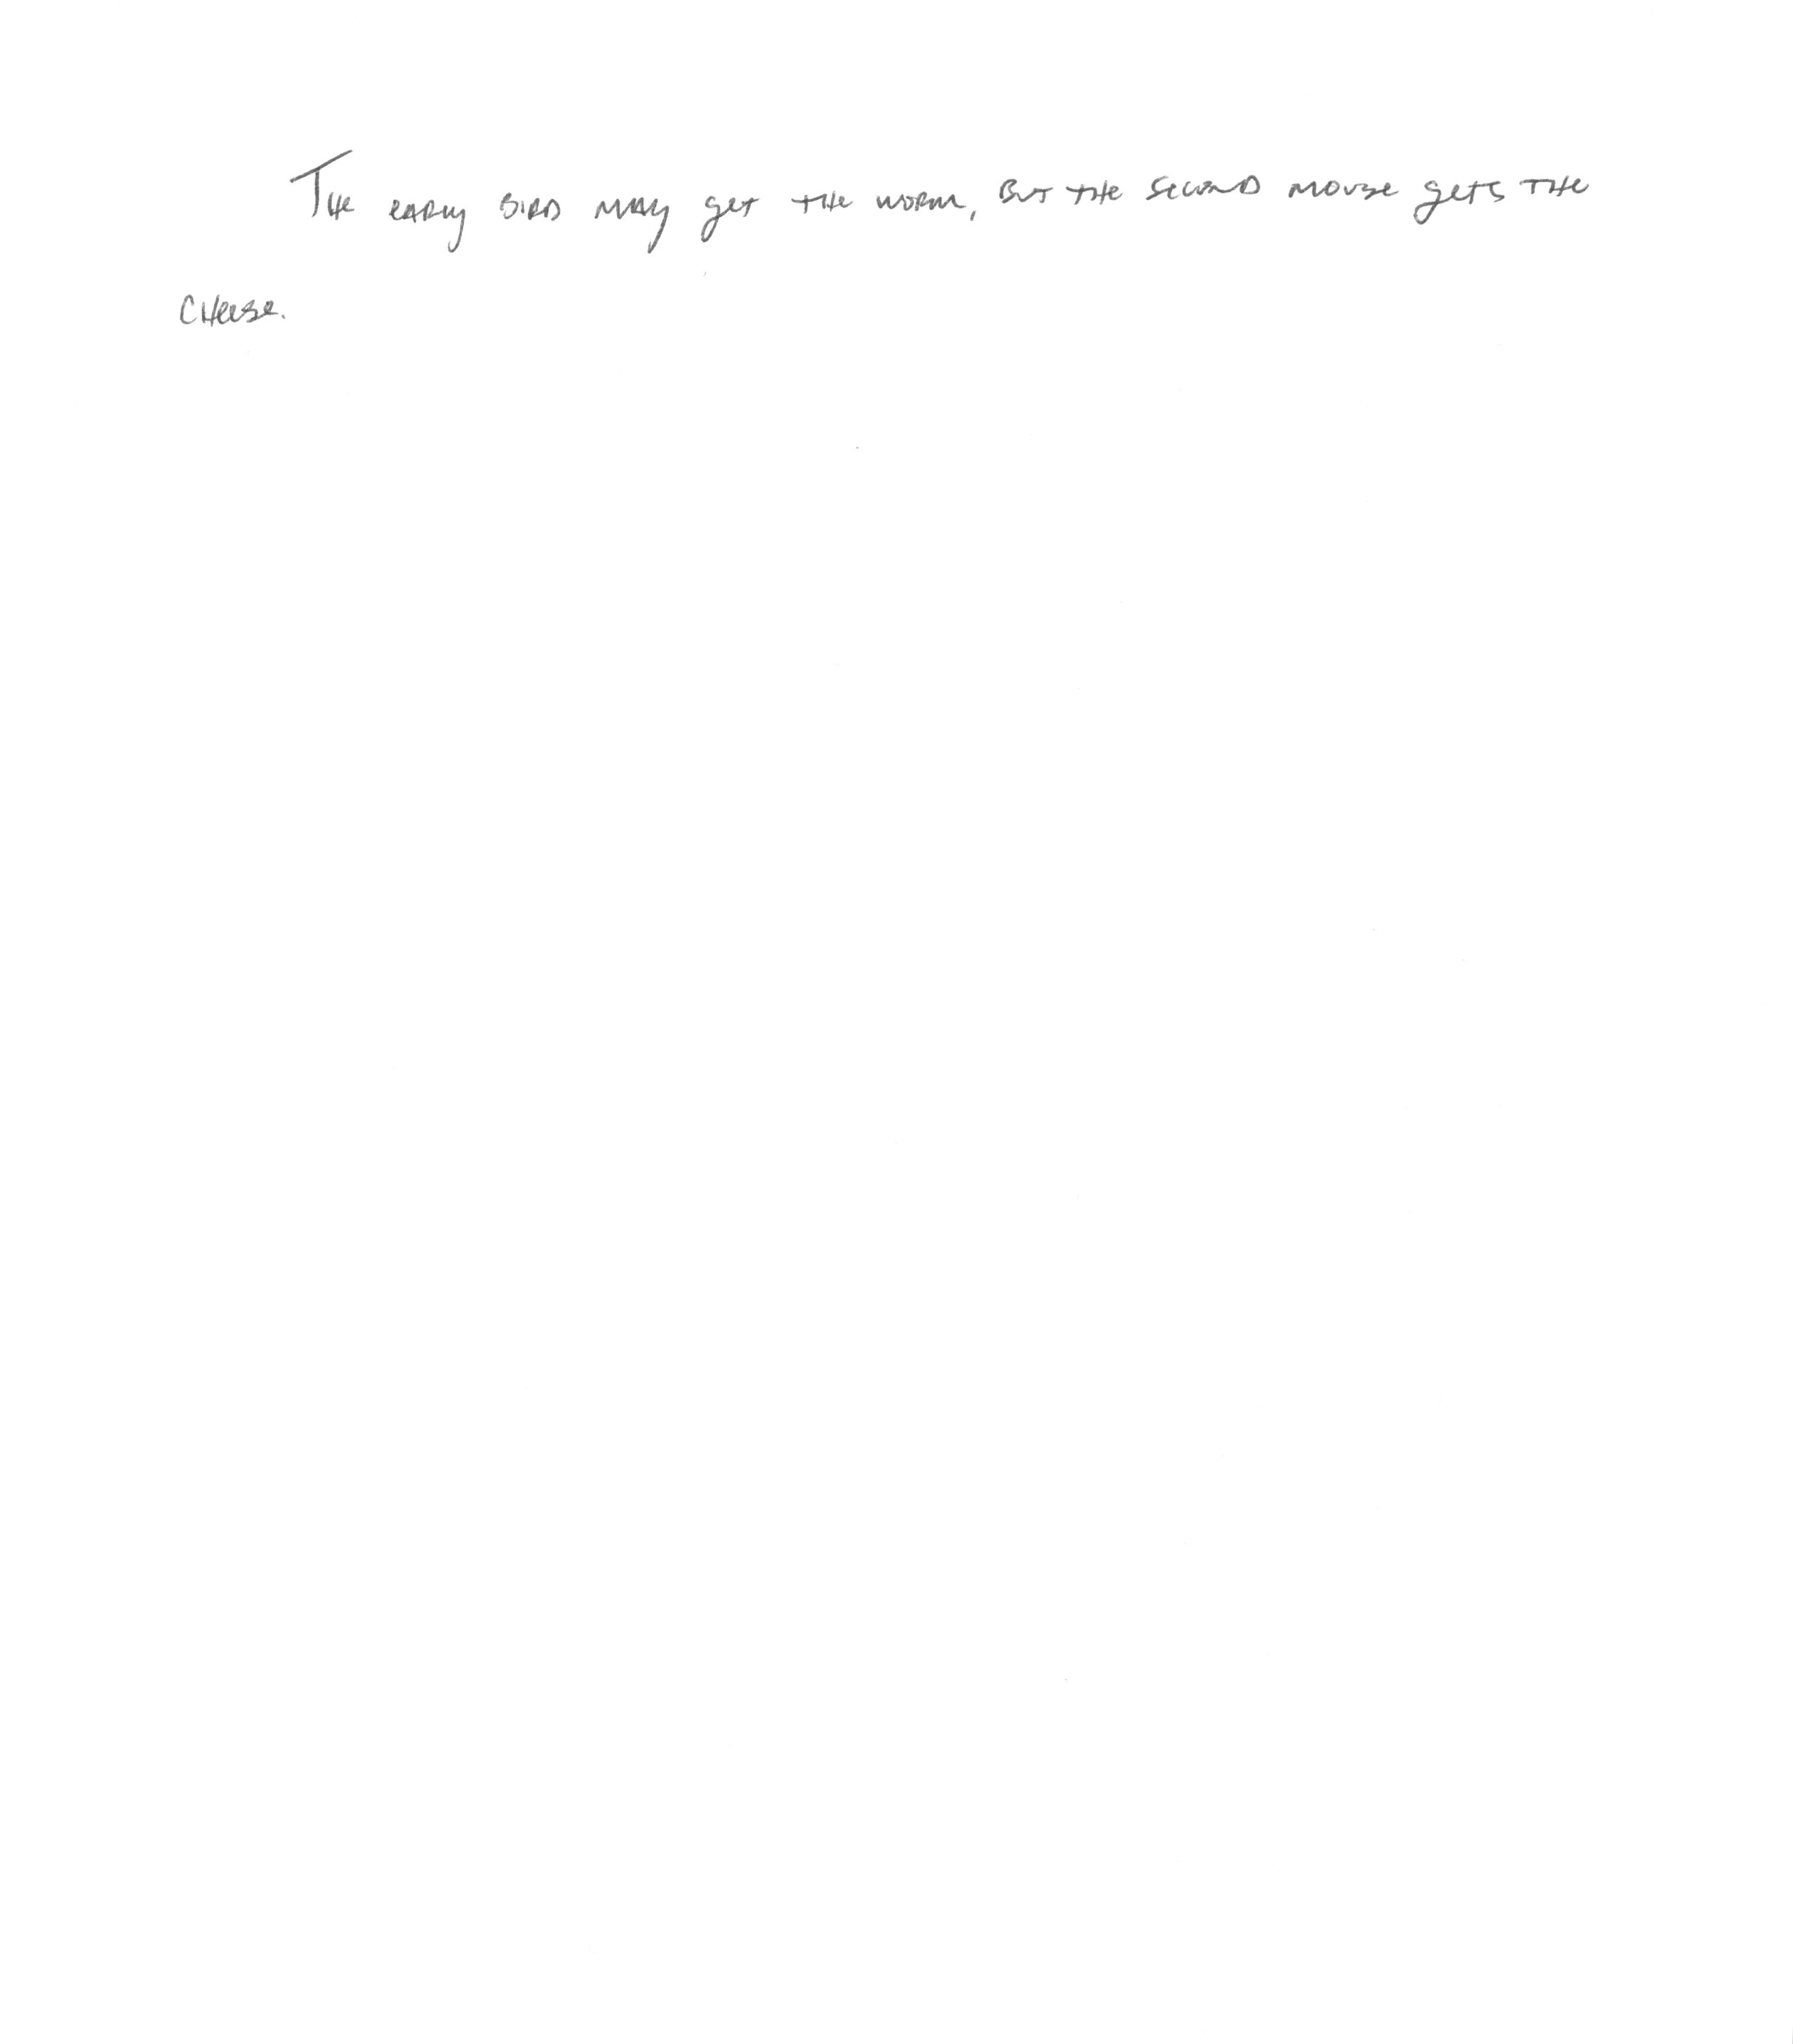 The early bird may get the worm, but the second mouse gets the
cheese.